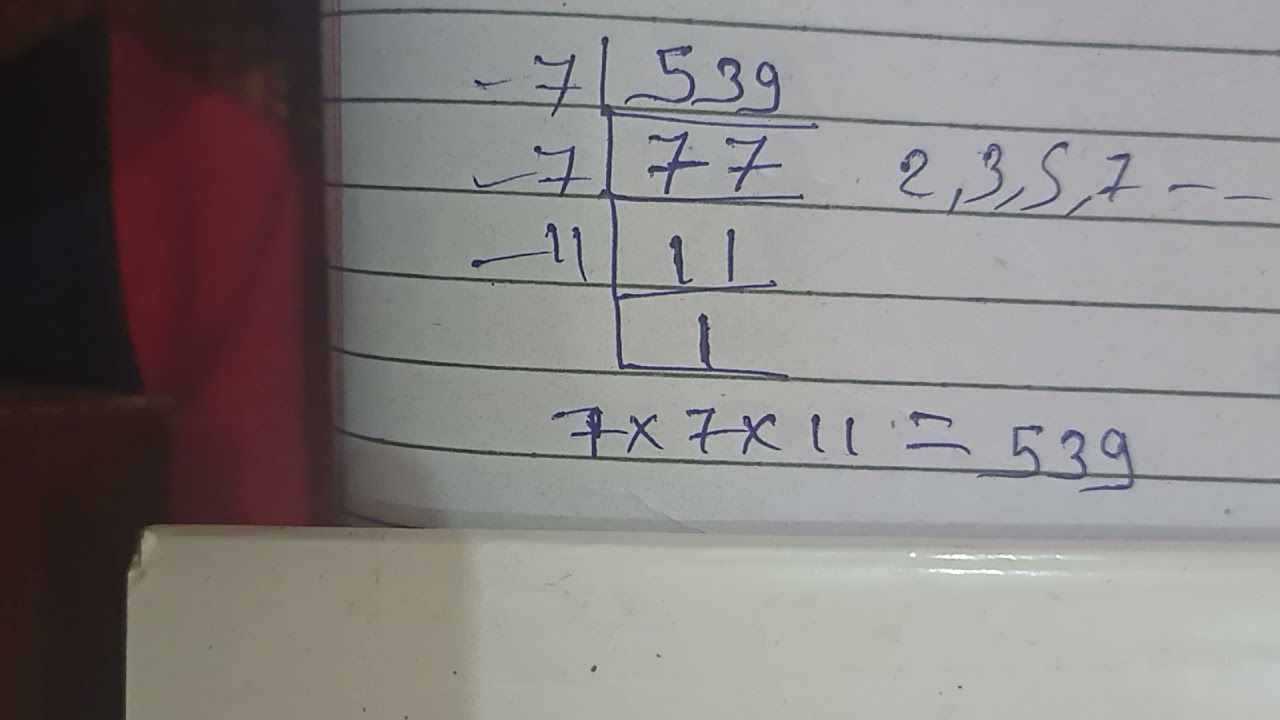 - 7 | 539
- 7 | 77 2,3,5,7 - -
- 11 | 11
1
7 x 7 x 11 = 539